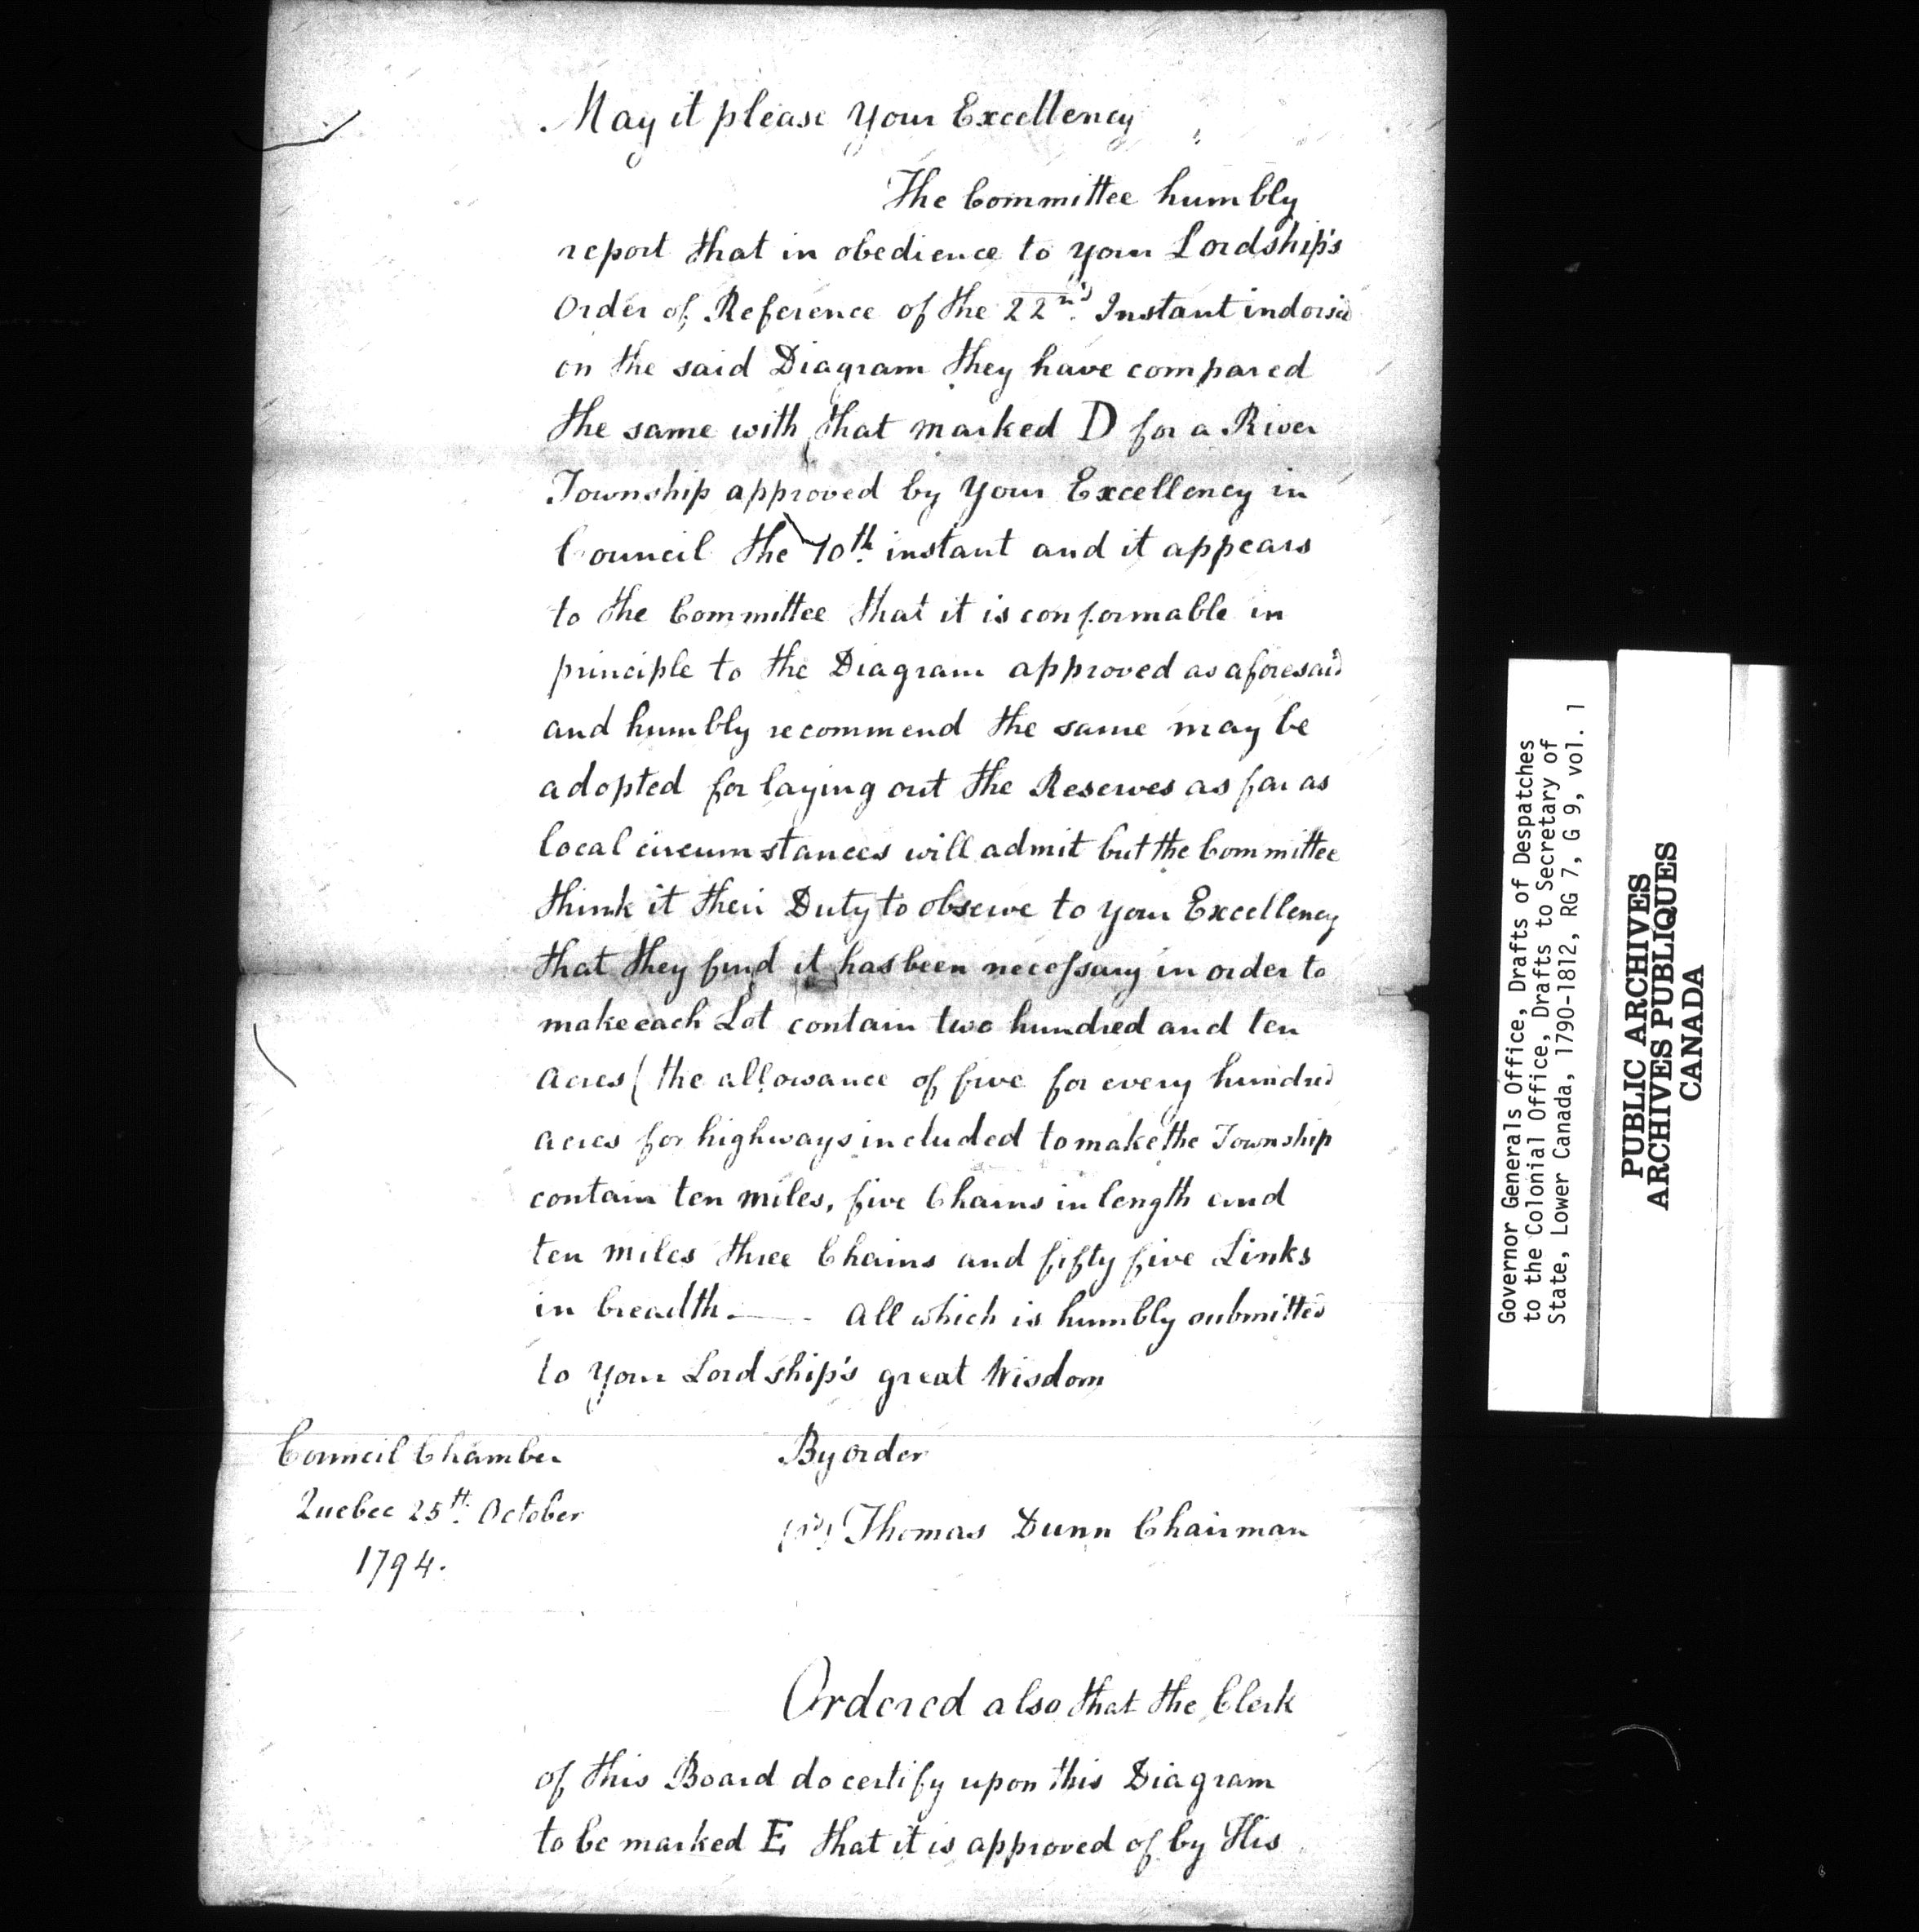 May it please Your Excellency
The Committee humbly
report that in obedience to your Lordship's
Order of Reference of the 22nd. Instant indorsed
on the said Diagram they have compared
the same with that marked D for a River
Township approved by Your Excellency in
Council the 10th. instant and it appears
to the Committee that it is conformable in
principle to the Diagram approved as aforesaid
and humbly recommend the same may be
adopted for laying out the Reserves as far as
local circumstances will admit but the Committee
think it their Duty to observe to your Excellency
that they find it has been necessary in order to
make each Lot contain two hundred and ten
Acres ( the allowance of five for every hundred
acres for highways included to make the Township
contain ten miles, five Chains in length and
ten miles three Chains and fifty five Links
in breadth. — All which is humbly submitted
to Your Lordship's great Wisdom
Council Chamber
Quebec 25th. October
1794.
By order
(sd) Thomas Dunn Chairman
Ordered also that the Clerk
of this Board do certify upon this Diagram
to be marked E that it is approved of by His
Governor Generals Office, Drafts of Despatches
to the Colonial Office, Drafts to Secretary of
State, Lower Canada, 1790-1812, RG 7, G 9, vol. 1
PUBLIC ARCHIVES
ARCHIVES PUBLIQUES
CANADA